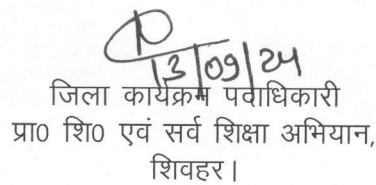 13/09/24
जिला कार्यक्रम पदाधिकारी
प्रा0 शि0 एवं सर्व शिक्षा अभियान,
शिवहर।